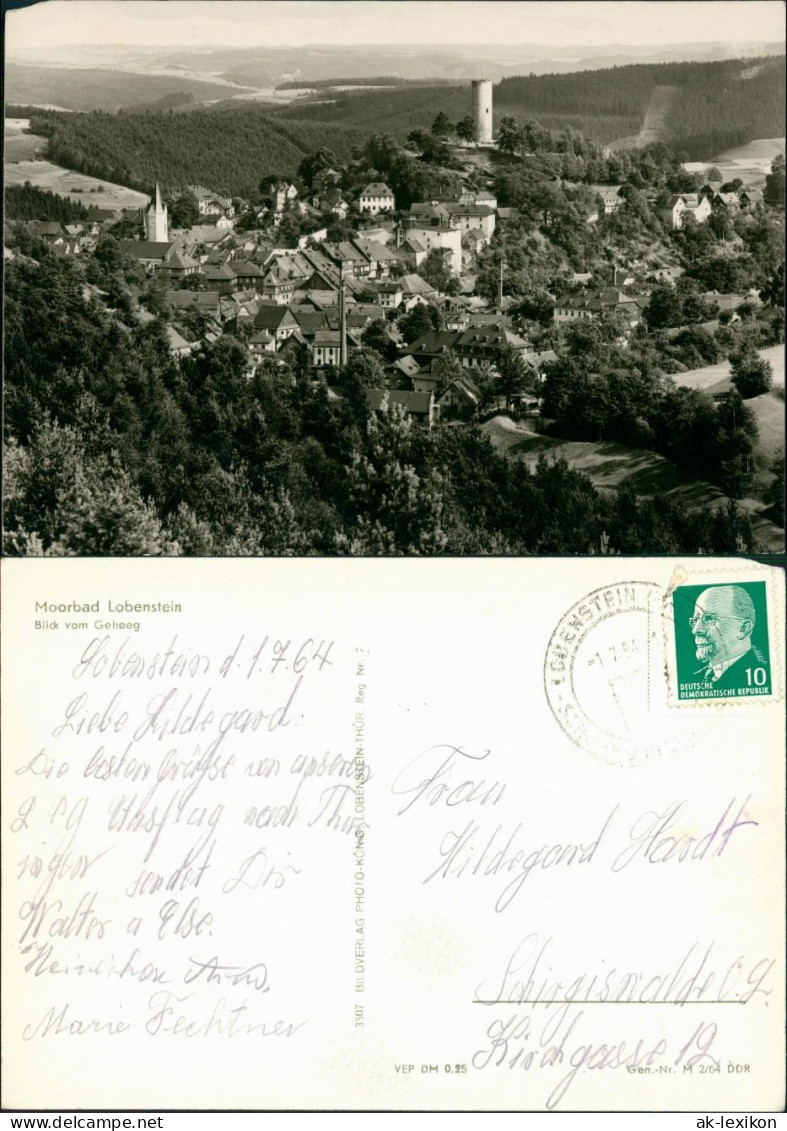 Moorbad Lobenstein
Blick vom Geheeg
Lobenstein d. 1.7.64
Liebe Hildegard.
Die besten Grüsse von unseren
2 Tg Ausflug nach Thü
ringen sendet Dir
Walter u Else.
Marie Fechtner
3507 BILDVERLAG PHOTO-KÖNIG, LOBENSTEIN-THÜR Reg Nr. 7
LOBENSTEIN
-1.7.64
10
DEUTSCHE
DEMOKRATISCHE REPUBLIK
Frau
Hildegard Hardt
Schirgiswalde O.L.
Kirchgasse 12
VEP DM 0.25
Gen.-Nr. M 2/64 DDR
ak-lexikon